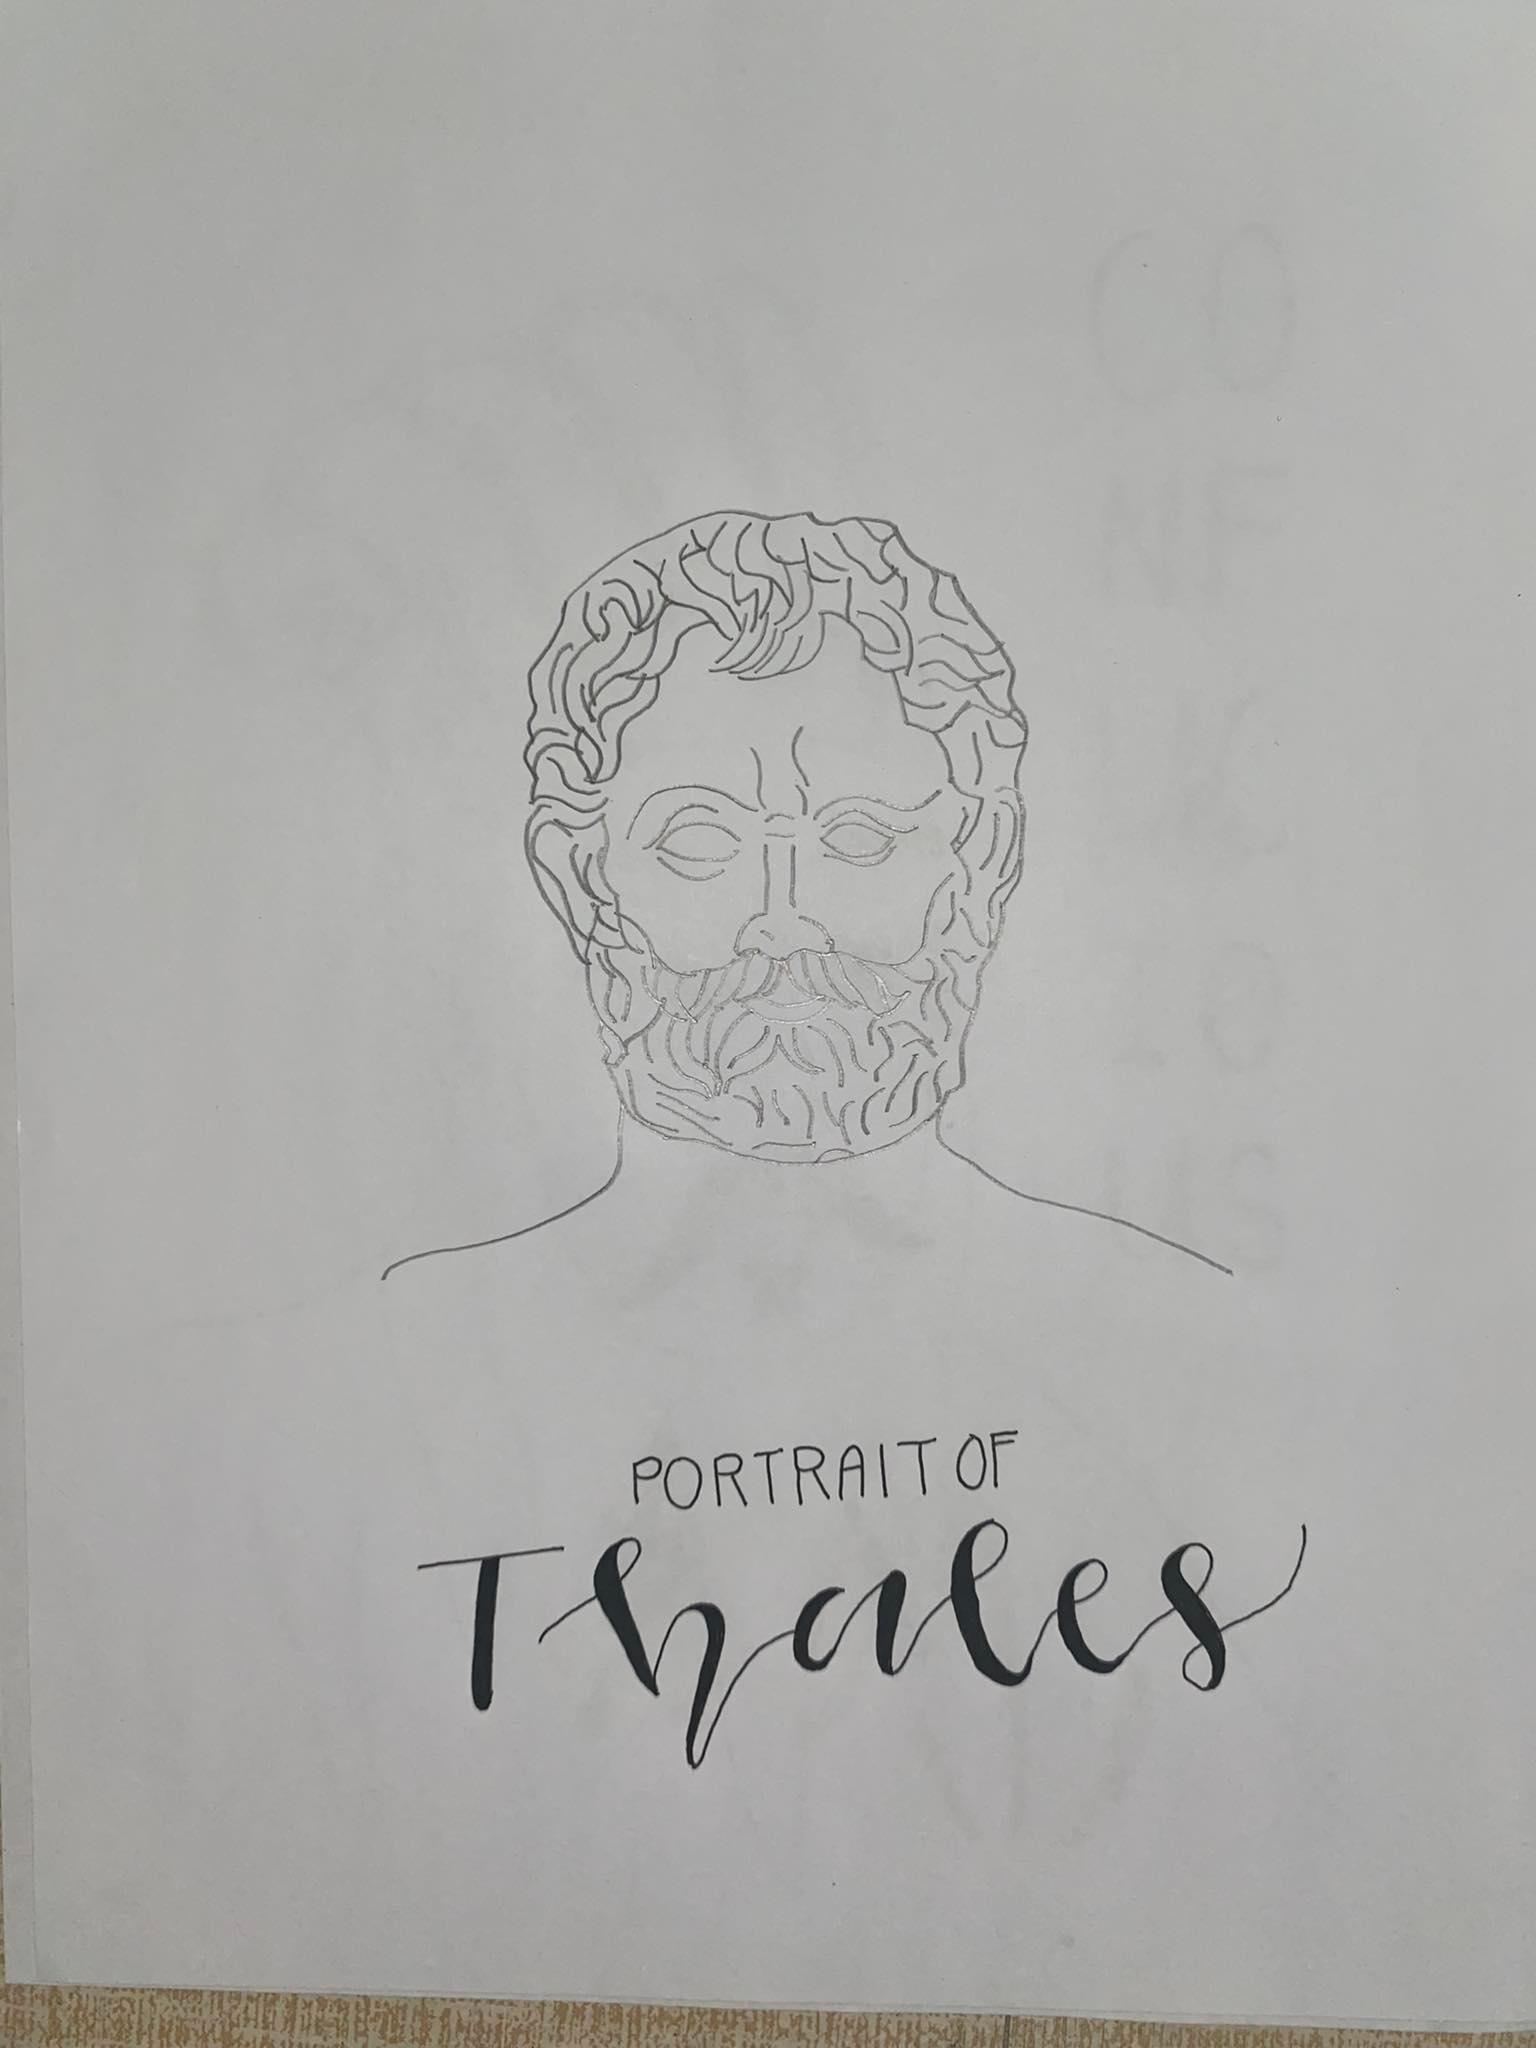 PORTRAIT OF
Thales